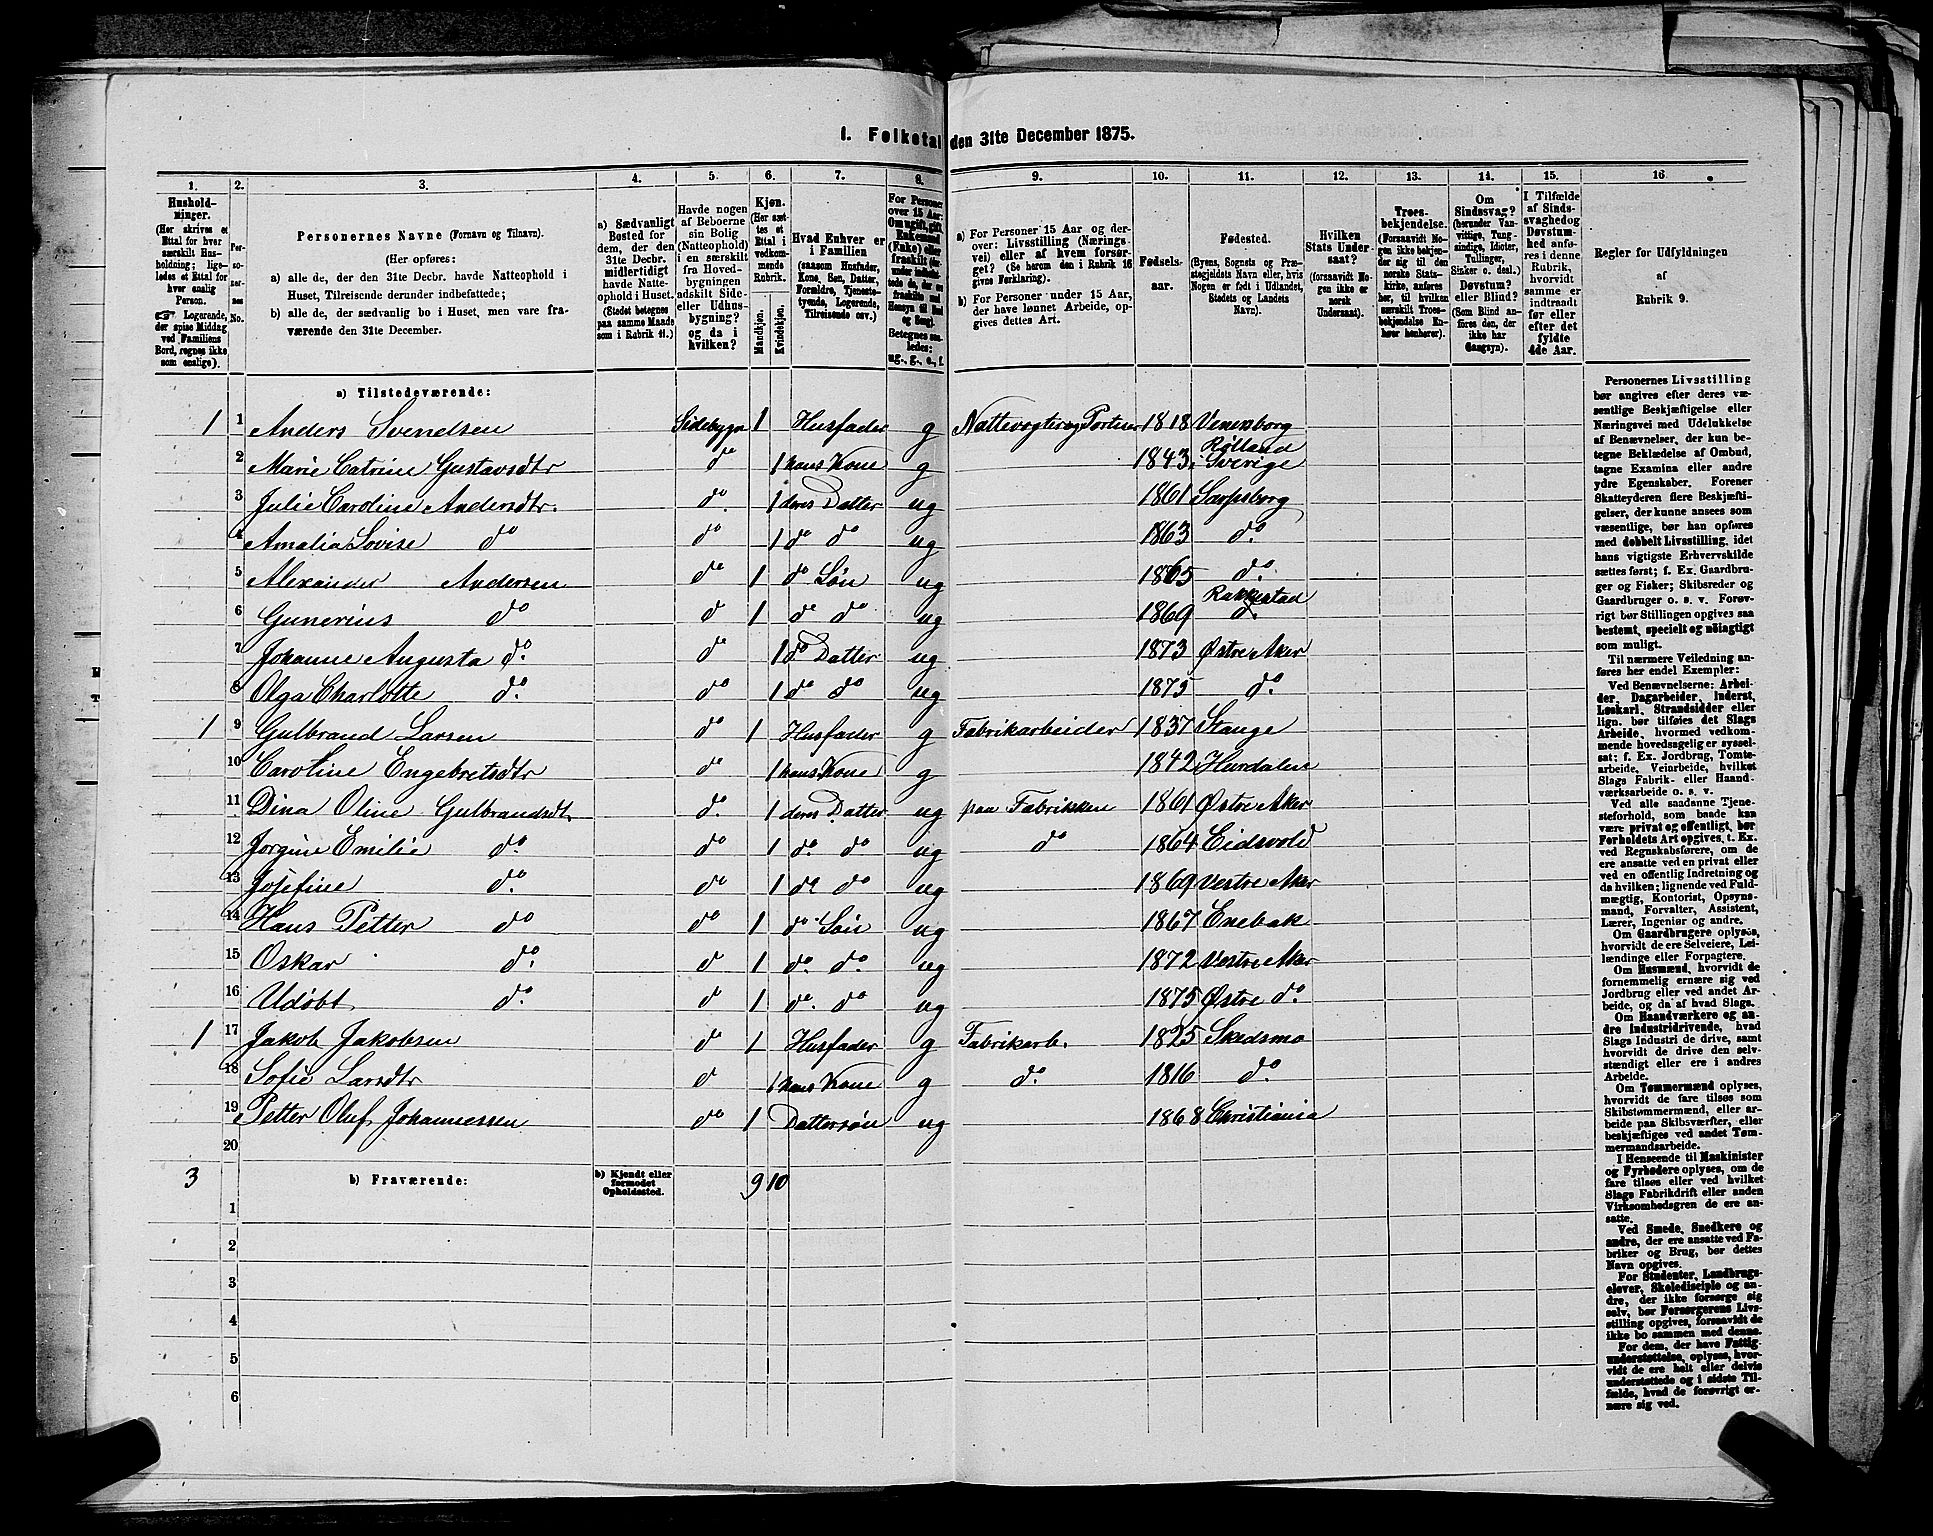 1. Folketal den 31te December 1875.
1. 2. 3. 4. 5. 6. 7. 8. 9. 10. 11. 12. 13. 14. 15. 16
Hushold-
ninger.
(Her skrives et
Ettal for hver
særskilt Hus-
holdning; lige-
ledes et Ettal for
hver enslig
Person.
☞ Logerende,
der spise Middag
ved Familiens
Bord, regnes ikke
som enslige).
Per-
so-
ner-
nes
No.
Personernes Navne (Fornavn og Tilnavn).
(Her opføres:
a) alle de, der den 31te Decbr. havde Natteophold i
Huset, Tilreisende derunder indbefattede;
b) alle de, der sædvanlig bo i Huset, men vare fra-
værende den 31te December.
a) Sædvanligt
Bosted for
dem, der den
31te Decbr.
midlertidigt
havde Natte-
ophold i Huset.
(Stedet betegnes
paa samme Maade
som i Rubrik 11.)
Havde nogen
af Beboerne
sin Bolig
(Natteophold)
i en særskilt
fra Hoved-
bygningen
adskilt Side-
eller Udhus-
bygning?
og da i
hvilken?
Kjøn.
(Her sæt-
tes et
Ettal i
vedkom-
mende
Rubrik.
Mandkjøn.
Kvindekjøn.
Hvad Enhver er
i Familien
(saasom Husfader,
Kone, Søn, Datter,
Forældre, Tjeneste-
tyende, Logerende,
Tilreisende osv.)
For Personer
over 15 Aar:
Om ugift, gift,
Enkemand
(Enke) eller
fraskilt
Betegnes saa-
ledes:
ug., g., e., f.
a) For Personer 15 Aar og der-
over: Livsstilling (Nærings-
vei) eller af hvem forsør-
get? (Se herom den i Rubrik 16
givne Forklaring).
b) For Personer under 15 Aar,
der have lønnet Arbeide, op-
gives dettes Art.
Fødsels-
aar.
Fødested.
(Byens, Sognets og Præ-
stegjeldets Navn eller, hvis
Nogen er født i Udlandet,
Stedets og Landets
Navn).
Hvilken
Stats Under-
saat?
(forsaavidt No-
gen ikke er
norsk
Undersaat).
Troes-
bekjendelse.
(Forsaavidt No-
gen ikke bekjen-
der sig til den
norske Stats-
kirke, anføres
her, til hvilken
særskilt Troes-
bekjendelse En-
hver henhører).
Om
Sindssvag?
(herunder Van-
vittige, Tung-
sindige, Idioter,
Tullinger,
Sinker o. desl.)
Døvstum?
eller Blind?
(Som Blind an-
føres den, der
ikke har
Gangsyn).
I Tilfælde
af Sinds-
svaghed og
Døvstum-
hed anfø-
res i denne
Rubrik,
hvorvidt
samme er
indtraadt
før eller
efter det
fyldte
4de Aar.
Regler for Udfyldningen
af
Rubrik 9.
a) Tilstedeværende:
1 1 Anders Svendsen Sidebygn 1 Husfader g Nattevogter og Portner 1818 Venersborg
2 Marie Catrine Gustavsdtr do 1 hans Kone g 1843 Rølland i Sverige
3 Julie Caroline Andersdtr. do. 1 deres Datter ug 1861 Sarpsborg
4 Amalia Lovise do do 1 do do ug 1863 do.
5 Alexander Andersen do 1 do Søn ug 1865 do.
6 Gunerius do d 1 do do ug 1869 Rakkestad do.
7 Johanne Augusta do. d 1 do Datter ug 1873 Østre Aker
8 Olga Charlotte do. do 1 do do ug 1875 do.
1 9 Gulbrand Larsen do 1 Husfader g Fabrikarbeider 1837 Stange
10 Caroline Engebretsdtr do 1 hans Kone g 1842 Hurdalen
11 Dina Oline Gulbrandsdt. do. 1 deres Datter ug paa Fabrikken 1861 Østre Aker
12 Jorgine Emilie do. do 1 do. do ug do 1864 Eidsvold
13 Josefine do. do 1 do do ug 1869 Vestre Aker
14 Hans Petter do do 1 do Søn ug 1867 Enebak
15 Oskar do. d 1 do. do. ug 1872 Vestre Aker
16 Udøbt do. d 1 do. do ug 1875 Østre do.
1 17 Jakob Jakobsen do 1 Husfader g Fabrikarb. 1825 Skedsmo
18 Sofie Larsdtr d 1 hans Kone g do. 1816 do.
19 Petter Oluf Johannessen do 1 Dattersøn ug 1868 Christiania
20
3 b) Fraværende: b) Kjendt eller
formodet
Opholdssted. 9 10
1
2
3
4
5
6
Personernes Livsstilling
bør angives efter deres væ-
sentlige Beskjæftigelse eller
Næringsvei med Udelukkelse
af Benævnelser, der kun be-
tegne Beklædelse af Ombud,
tagne Examina eller andre
ydre Egenskaber. Forener
Skatteyderen flere Beskjæfti-
gelser, der kunne ansees som
væsentlige, bør han opføres
med dobbelt Livsstilling, idet
hans vigtigste Erhvervskilde
sættes først; f. Ex. Gaardbru-
ger og Fisker; Skibsreder og
Gaardbruger o. s. v. Forøv-
rigt bør Stillingen opgives saa
bestemt, specielt og nöiagtigt
som muligt.
Til nærmere Veiledning an-
føres her endel Exempler:
Ved Benævnelserne: Arbei-
der, Dagarbeider, Inderst,
Løskarl, Strandsidder eller
lign. bør tilføies det Slags
Arbeide, hvormed vedkom-
mende hovedsagelig er syssel-
sat; f. Ex. Jordbrug, Tomte-
arbeide, Veiarbeide, hvilket
Slags Fabrik- eller Haand-
værksarbeide o. s. v.
Ved alle saadanne Tjene-
steforhold, som baade kan
være privat og offentligt, bør
Forholdets Art opgives, t. Ex.
ved Regnskabsførere, om de
ere ansatte ved en privat eller
ved en offentlig Indretning og
da hvilken; lignende ved Fuld-
mægtig, Kontorist, Opsyns-
mand, Forvalter, Assistent,
Lærer, Ingeniør og andre.
Om Gaardbrugere oplyses,
hvorvidt de ere Selveiere, Lei-
lændinge eller Forpagtere.
Om Husmænd, hvorvidt de
fornemmelig ernære sig ved
Jordbrug eller ved andet Ar-
beide, og da af hvad Slags.
Om Haandværkere og an-
dre industridrivende, hvad
Slags Industri de drive, samt
hvorvidt de drive den selv-
stændigt eller ere i andres
Arbeide.
Om Tømmermænd oplyses,
hvorvidt de fare tilsøs som
Skibstømmermænd, eller ar-
beide paa Skibsværfter, eller
beskjæftiges ved andet Tøm-
mermandsarbeide.
I Henseende til Maskinister
og Fyrbødere oplyses, om de
fare tilsøs eller ved hvilket
Slags Fabrikdrift eller anden
Virksomhedsgren de ere an-
satte.
Ved Smede, Snedkere og
andre, der ere ansatte ved Fa-
briker og Brug, bør dettes
Navn opgives.
For Studenter, Landbrugs-
elever, Skoledisciple og an-
dre, der ikke forsørge sig
selv, bør Forsørgerens Livs-
stilling opgives, forsaavidt de
ikke bo sammen med denne.
For dem, der have Fattig-
understøttelse, oplyses, hvor-
vidt de ere helt eller delvis
understøttede og i sidste Til-
fælde, hvad de forøvrigt er-
nære sig ved.